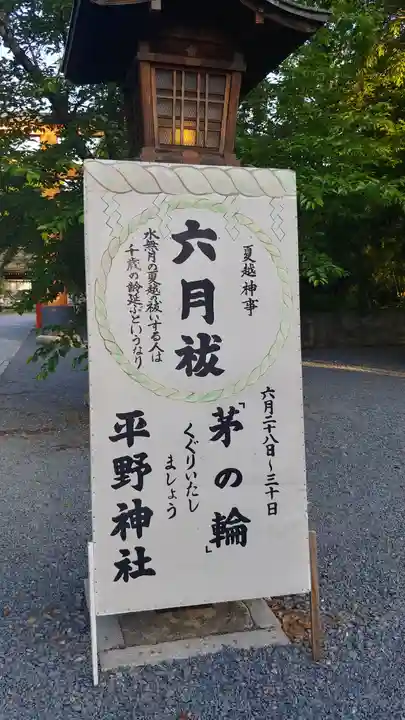 夏越神事
六月祓
水無月の夏越の祓いする人は
千歳の齢延ぶというなり
六月二十八日～三十日
「茅の輪」
くぐりいたし
ましょう
平野神社